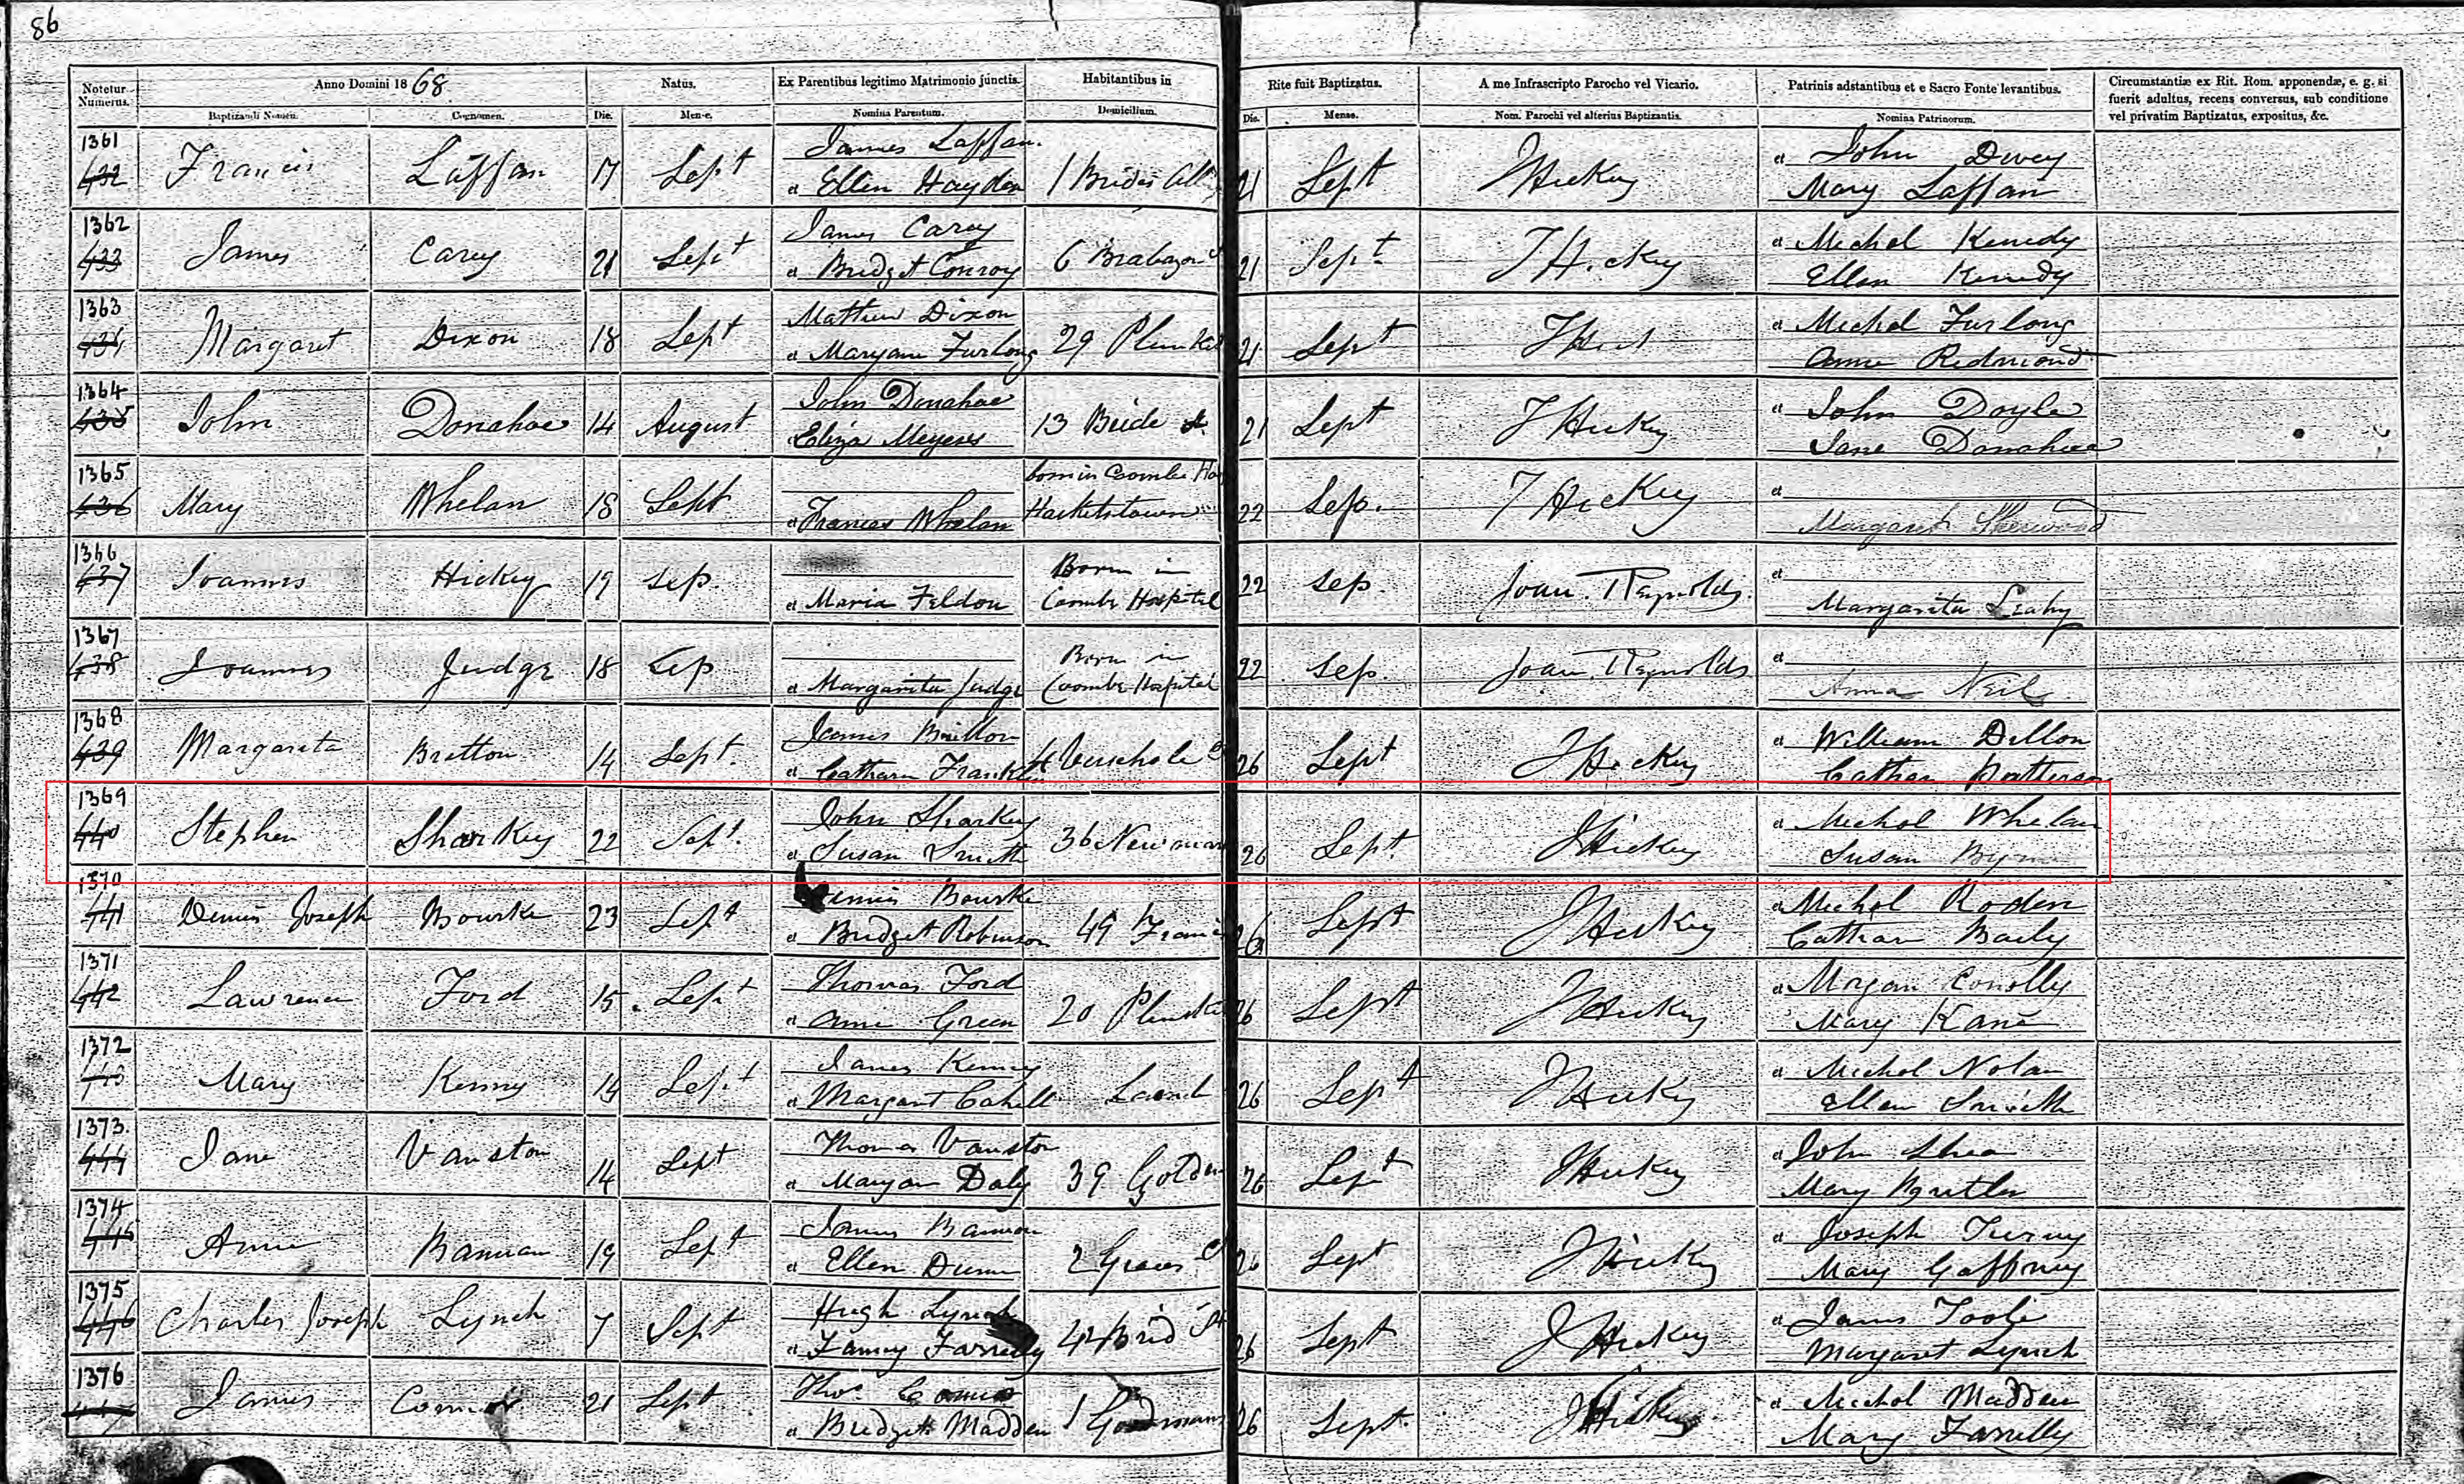 86
Notetur Numerus.
Anno Domini 1868
Natus.
Ex Parentibus legitimo Matrimonio junctis.
Habitantibus in
Rite fuit Baptizatus.
A me Infrascripto Parocho vel Vicario.
Patrinis adstantibus et e Sacro Fonte levantibus.
Circumstantiæ ex Rit. Rom. apponendæ, e. g. si
fuerit adultus, recens conversus, sub conditione
vel privatim Baptizatus, expositus, &c.
Baptizandi Nomen. Cognomen. Die. Mense. Nomina Parentum. Domicilium. Die. Mense. Nom. Parochi vel alterius Baptizantis. Nomina Patrinorum.
1361 James Laffan. et John Divey
432 Francis Laffan 17 Sept et Ellen Hayden 1 Brides All 21 Sept JHickey Mary Laffan
1362 James Carey et Michol Kenedy
433 James Carey 21 Sept et Bridget Conroy 6 Brabazon 21 Sept JHickey Ellen Kenedy
1363 Mathew Dixon et Michol Furlong
434 Margaret Dixon 18 Sept et Maryanne Furlong 29 Plunket 21 Sept Anne Redmond
1364 John Donahoe et John Doyle
435 John Donahoe 14 August Eliza Meyers 13 Bride St 21 Sept JHickey Jane Donahoe
1365 born in Coombe Hos et
436 Mary Whelan 18 Sept et Frances Whelan Hacketstown 22 Sep. JHickey Margaret Sherwood
1366 Born in et
437 Joannes Hickey 19 Sep. et Maria Feldon Coombe Hospital 22 Sep. Joan. T Reynolds. Margarita Leahy
1367 Born in et
438 Joannes Judge 18 Sep et Margarita Judge Coombe Hospital 22 Sep. Joan. T Reynolds Anna Neil
1368 James et William Dillon
439 Margareta Bretton 14 Sept. et Cathern Franklin 26 Sept JHickey Cathern Patterson
1369 John Sharkey et Michol Whelan
440 Stephen Sharkey 22 Sept. et Susan Smith 36 Newmar 26 Sept. JHickey Susan Byrne
1370 Dennis Bourke et Michol Roden
441 Dennis Joseph Bourke 23 Sept et Bridget Robinson 49 Franci 26 Sept JHickey Cathern Baily
1371 Thomas Ford et Morgan Conolly
442 Lawrence Ford 15 Sept et Anne Green 20 Plunke 26 Sept JHickey Mary Kane
1372 James Kenny et Michol Nolan
443 Mary Kenny 14 Sept et Margaret Cahill 26 Sept JHickey Ellen Smith
1373 Thomas Vanston et John Shea
444 Jane Vanston 14 Sept et Maryan Daly 39 Golden 26 Sept JHickey Mary Butler
1374 James Bannon et Joseph
445 Anne Bannan 19 Sept et Ellen Dunn 2 Graces 26 Sept JHickey Mary Gaffney
1375 Hugh Lynch et James Toole
446 Charles Joseph Lynch 7 Sept et Fanny Farrelly 42 Brid St 26 Sept JHickey Margaret Lynch
1376 Thos. et Michol Madden
447 James Connor 21 Sept et Bridget Madden 1 Goodmans 26 Sept. JHickey Mary Farrelly